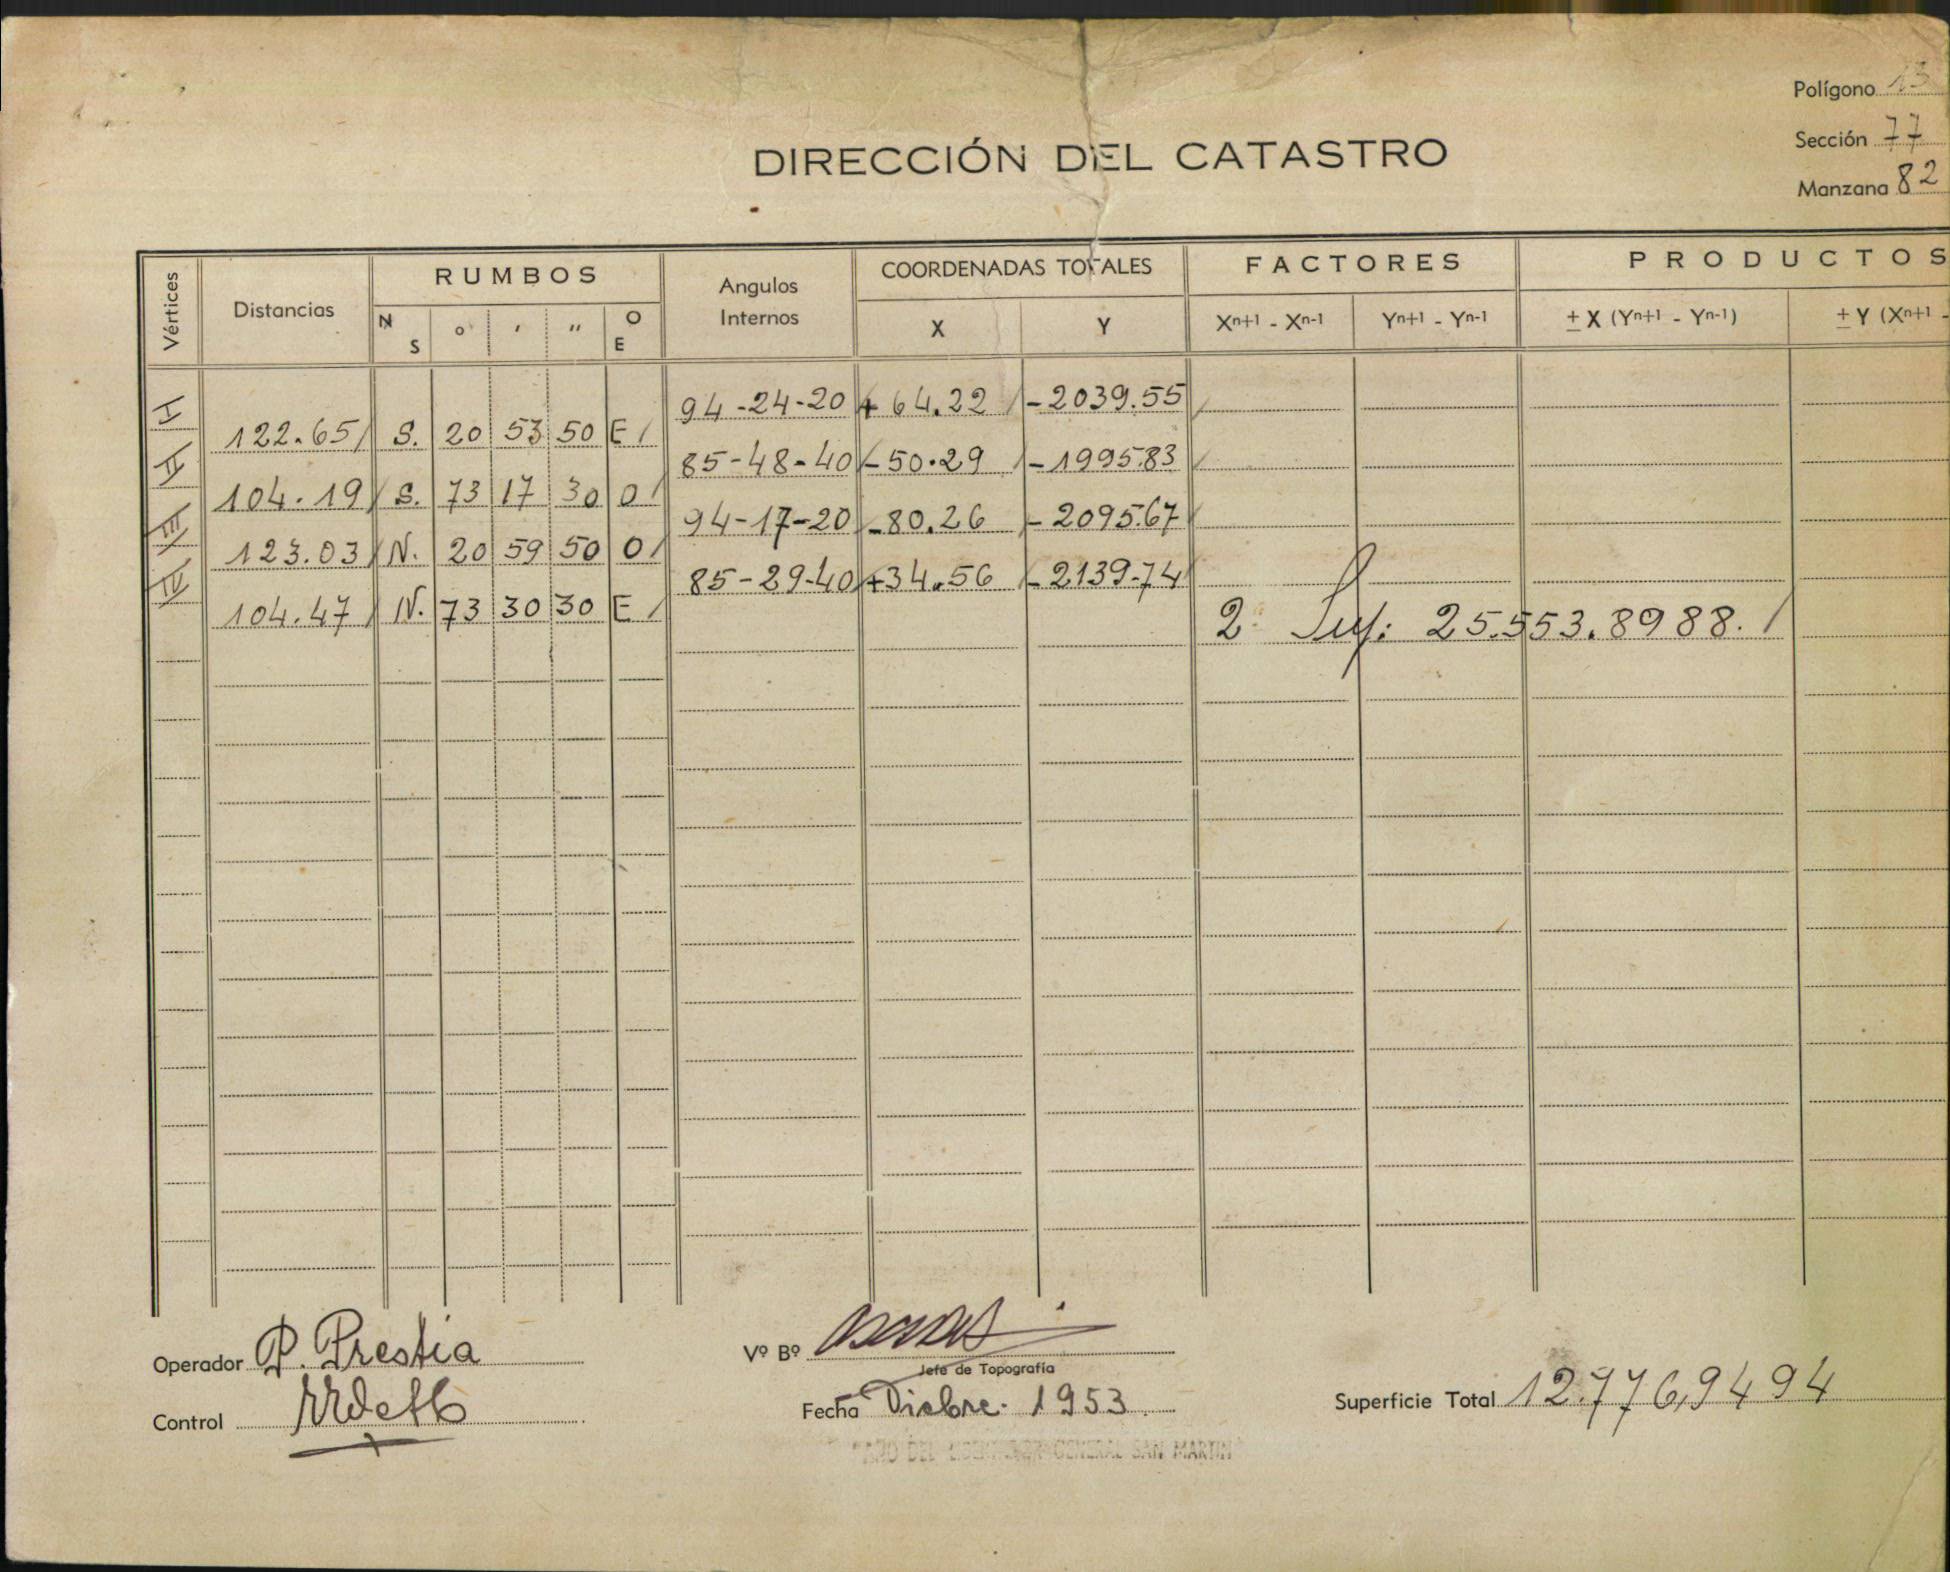 Polígono 13
Sección 77
Manzana 82
DIRECCIÓN DEL CATASTRO
Vértices Distancias RUMBOS Angulos Internos COORDENADAS TOTALES FACTORES PRODUCTOS
N S ° ' " O E X Y Xn+1 - Xn-1 Yn+1 - Yn-1 ± X (Yn+1 - Yn-1) ± Y (Xn+1 -
I 94-24-20 + 64.22 - 2039.55
122.65 S. 20 53 50 E
II 85-48-40 - 50.29 - 1995.83
104.19 S. 73 17 30 O
III 94-17-20 - 80.26 - 2095.67
123.03 N. 20 59 50 O
IV 85-29-40 + 34.56 - 2139.74
104.47 N. 73 30 30 E
2 Sup: 25.553.8988.
Operador P. Prestia
Vº Bº
Jefe de Topografía
Control
Fecha Dicbre. 1953
Superficie Total 12.776,9494
"AÑO DEL LIBERTADOR GENERAL SAN MARTIN"